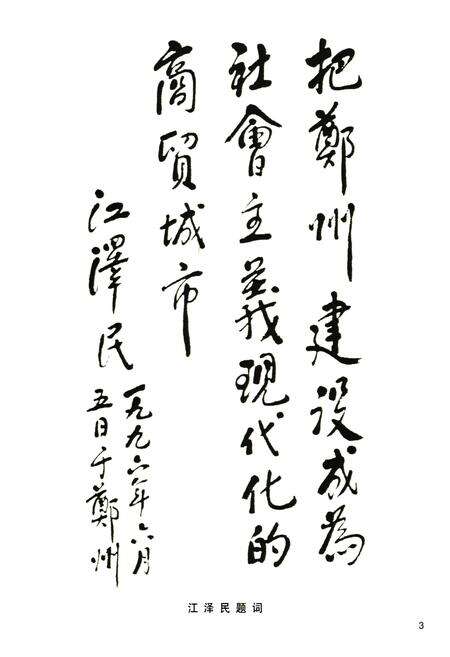 把鄭州建设成為
社會主義現代化的
商貿城市
江澤民
一九九六年六月
五日于鄭州
江泽民题词
3